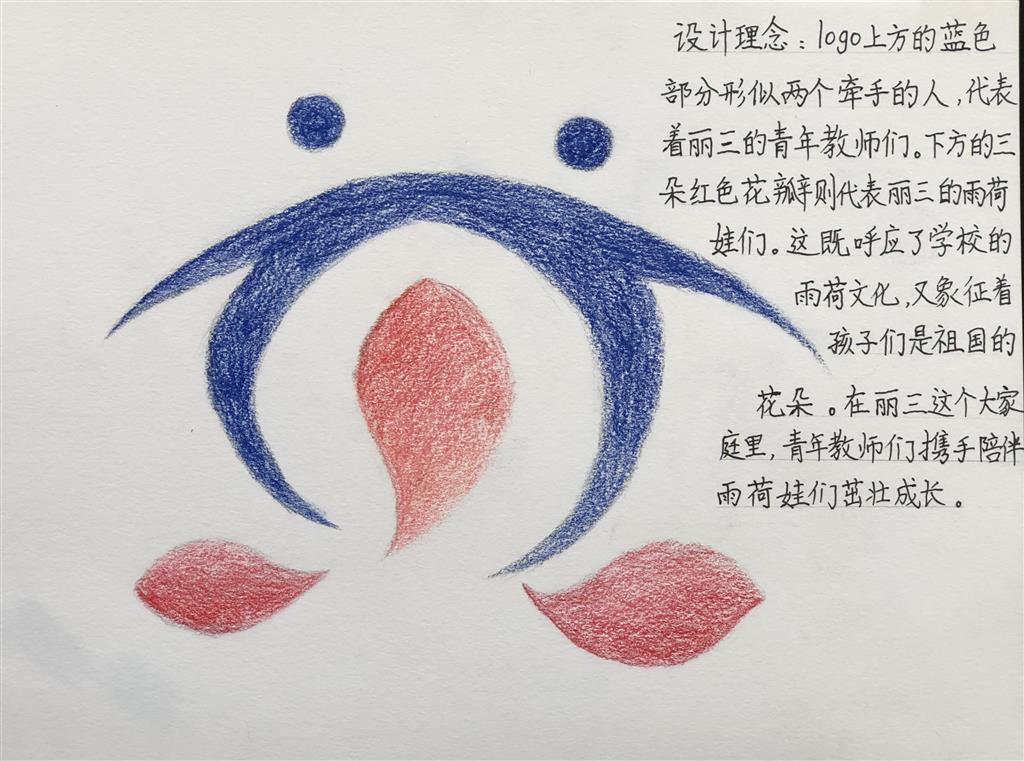 设计理念：logo上方的蓝色
部分形似两个牵手的人，代表
着丽三的青年教师们。下方的三
朵红色花瓣则代表丽三的雨荷
娃们。这既呼应了学校的
雨荷文化，又象征着
孩子们是祖国的
花朵。在丽三这个大家
庭里，青年教师们携手陪伴
雨荷娃们茁壮成长。